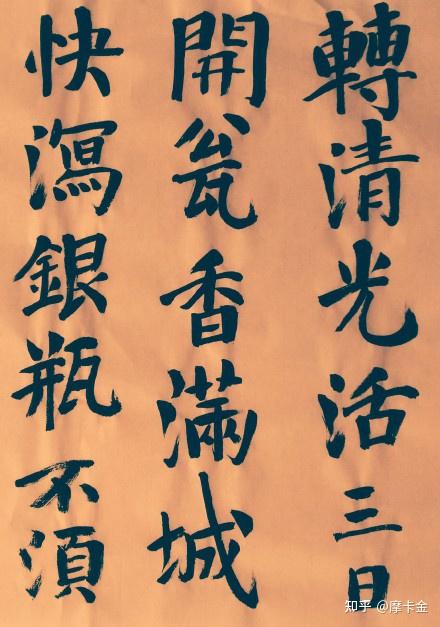 轉清光活三日
開瓮香滿城
快瀉銀瓶不須
知乎 @摩卡金